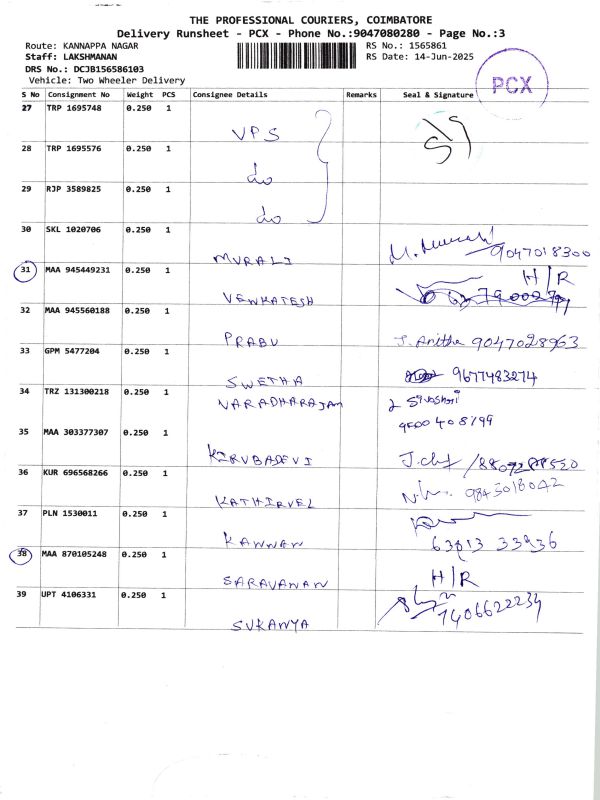 THE PROFESSIONAL COURIERS, COIMBATORE
Delivery Runsheet - PCX - Phone No.:9047080280 - Page No.:3
Route: KANNAPPA NAGAR RS No.: 1565861
Staff: LAKSHMANAN RS Date: 14-Jun-2025
DRS No.: DCJB156586103
Vehicle: Two Wheeler Delivery
PCX
S No Consignment No Weight PCS Consignee Details Remarks Seal & Signature
27 TRP 1695748 0.250 1
VPS
28 TRP 1695576 0.250 1
do
29 RJP 3589825 0.250 1
do
30 SKL 1020706 0.250 1
MURALI 9047018300
31 MAA 945449231 0.250 1 H/R
VENKATESH
32 MAA 945560188 0.250 1
PRABU J. Anitha 9047028963
33 GPM 5477204 0.250 1
SWETHA 9677483274
34 TRZ 131300218 0.250 1
VARADHARAJAN
35 MAA 303377307 0.250 1
KIRUBADEVI
36 KUR 696568266 0.250 1
KATHIRVEL 9843018042
37 PLN 1530011 0.250 1
KANNAN 63813 33936
38 MAA 870105248 0.250 1
SARAVANAN H/R
39 UPT 4106331 0.250 1
SUKANYA 7406622234